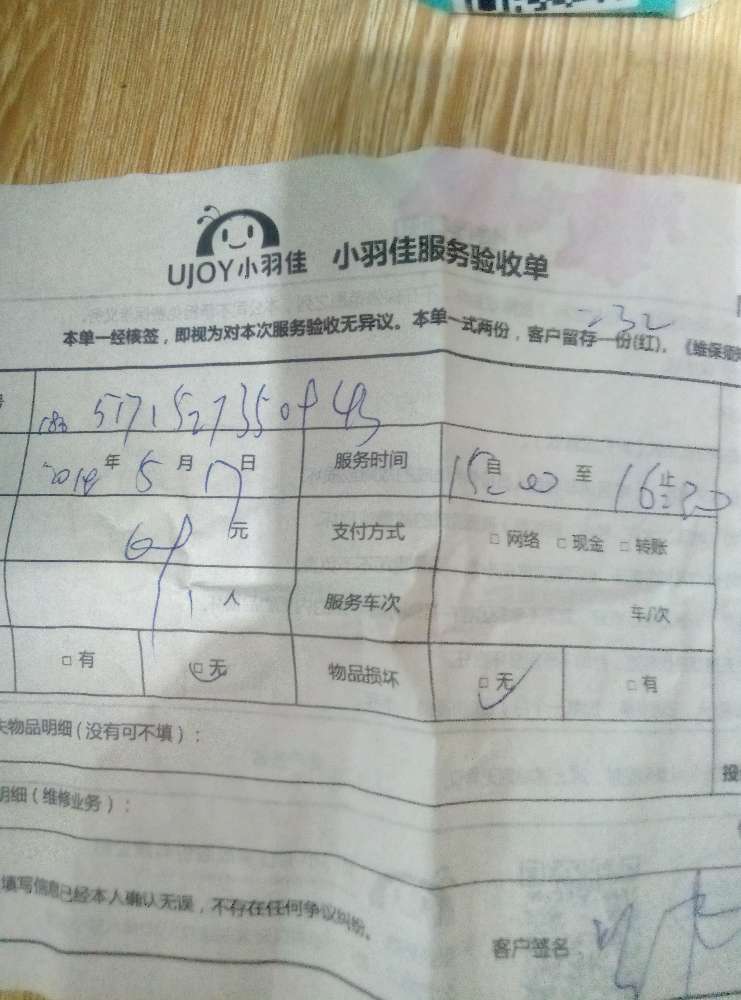 UJOY小羽佳 小羽佳服务验收单
本单一经核签，即视为对本次服务验收无异议。本单一式两份，客户留存一份(红)。《维保须
232
年 5 月 17 日 服务时间 自 15:00 至 止 16:30
元 支付方式 □ 网络 □ 现金 □ 转账
1 人 服务车次 车/次
□ 有 □ 无 物品损坏 □ 无 □ 有
物品明细(没有可不填)：
明细(维修业务)：
填写信息已经本人确认无误，不存在任何争议纠纷。
客户签名：